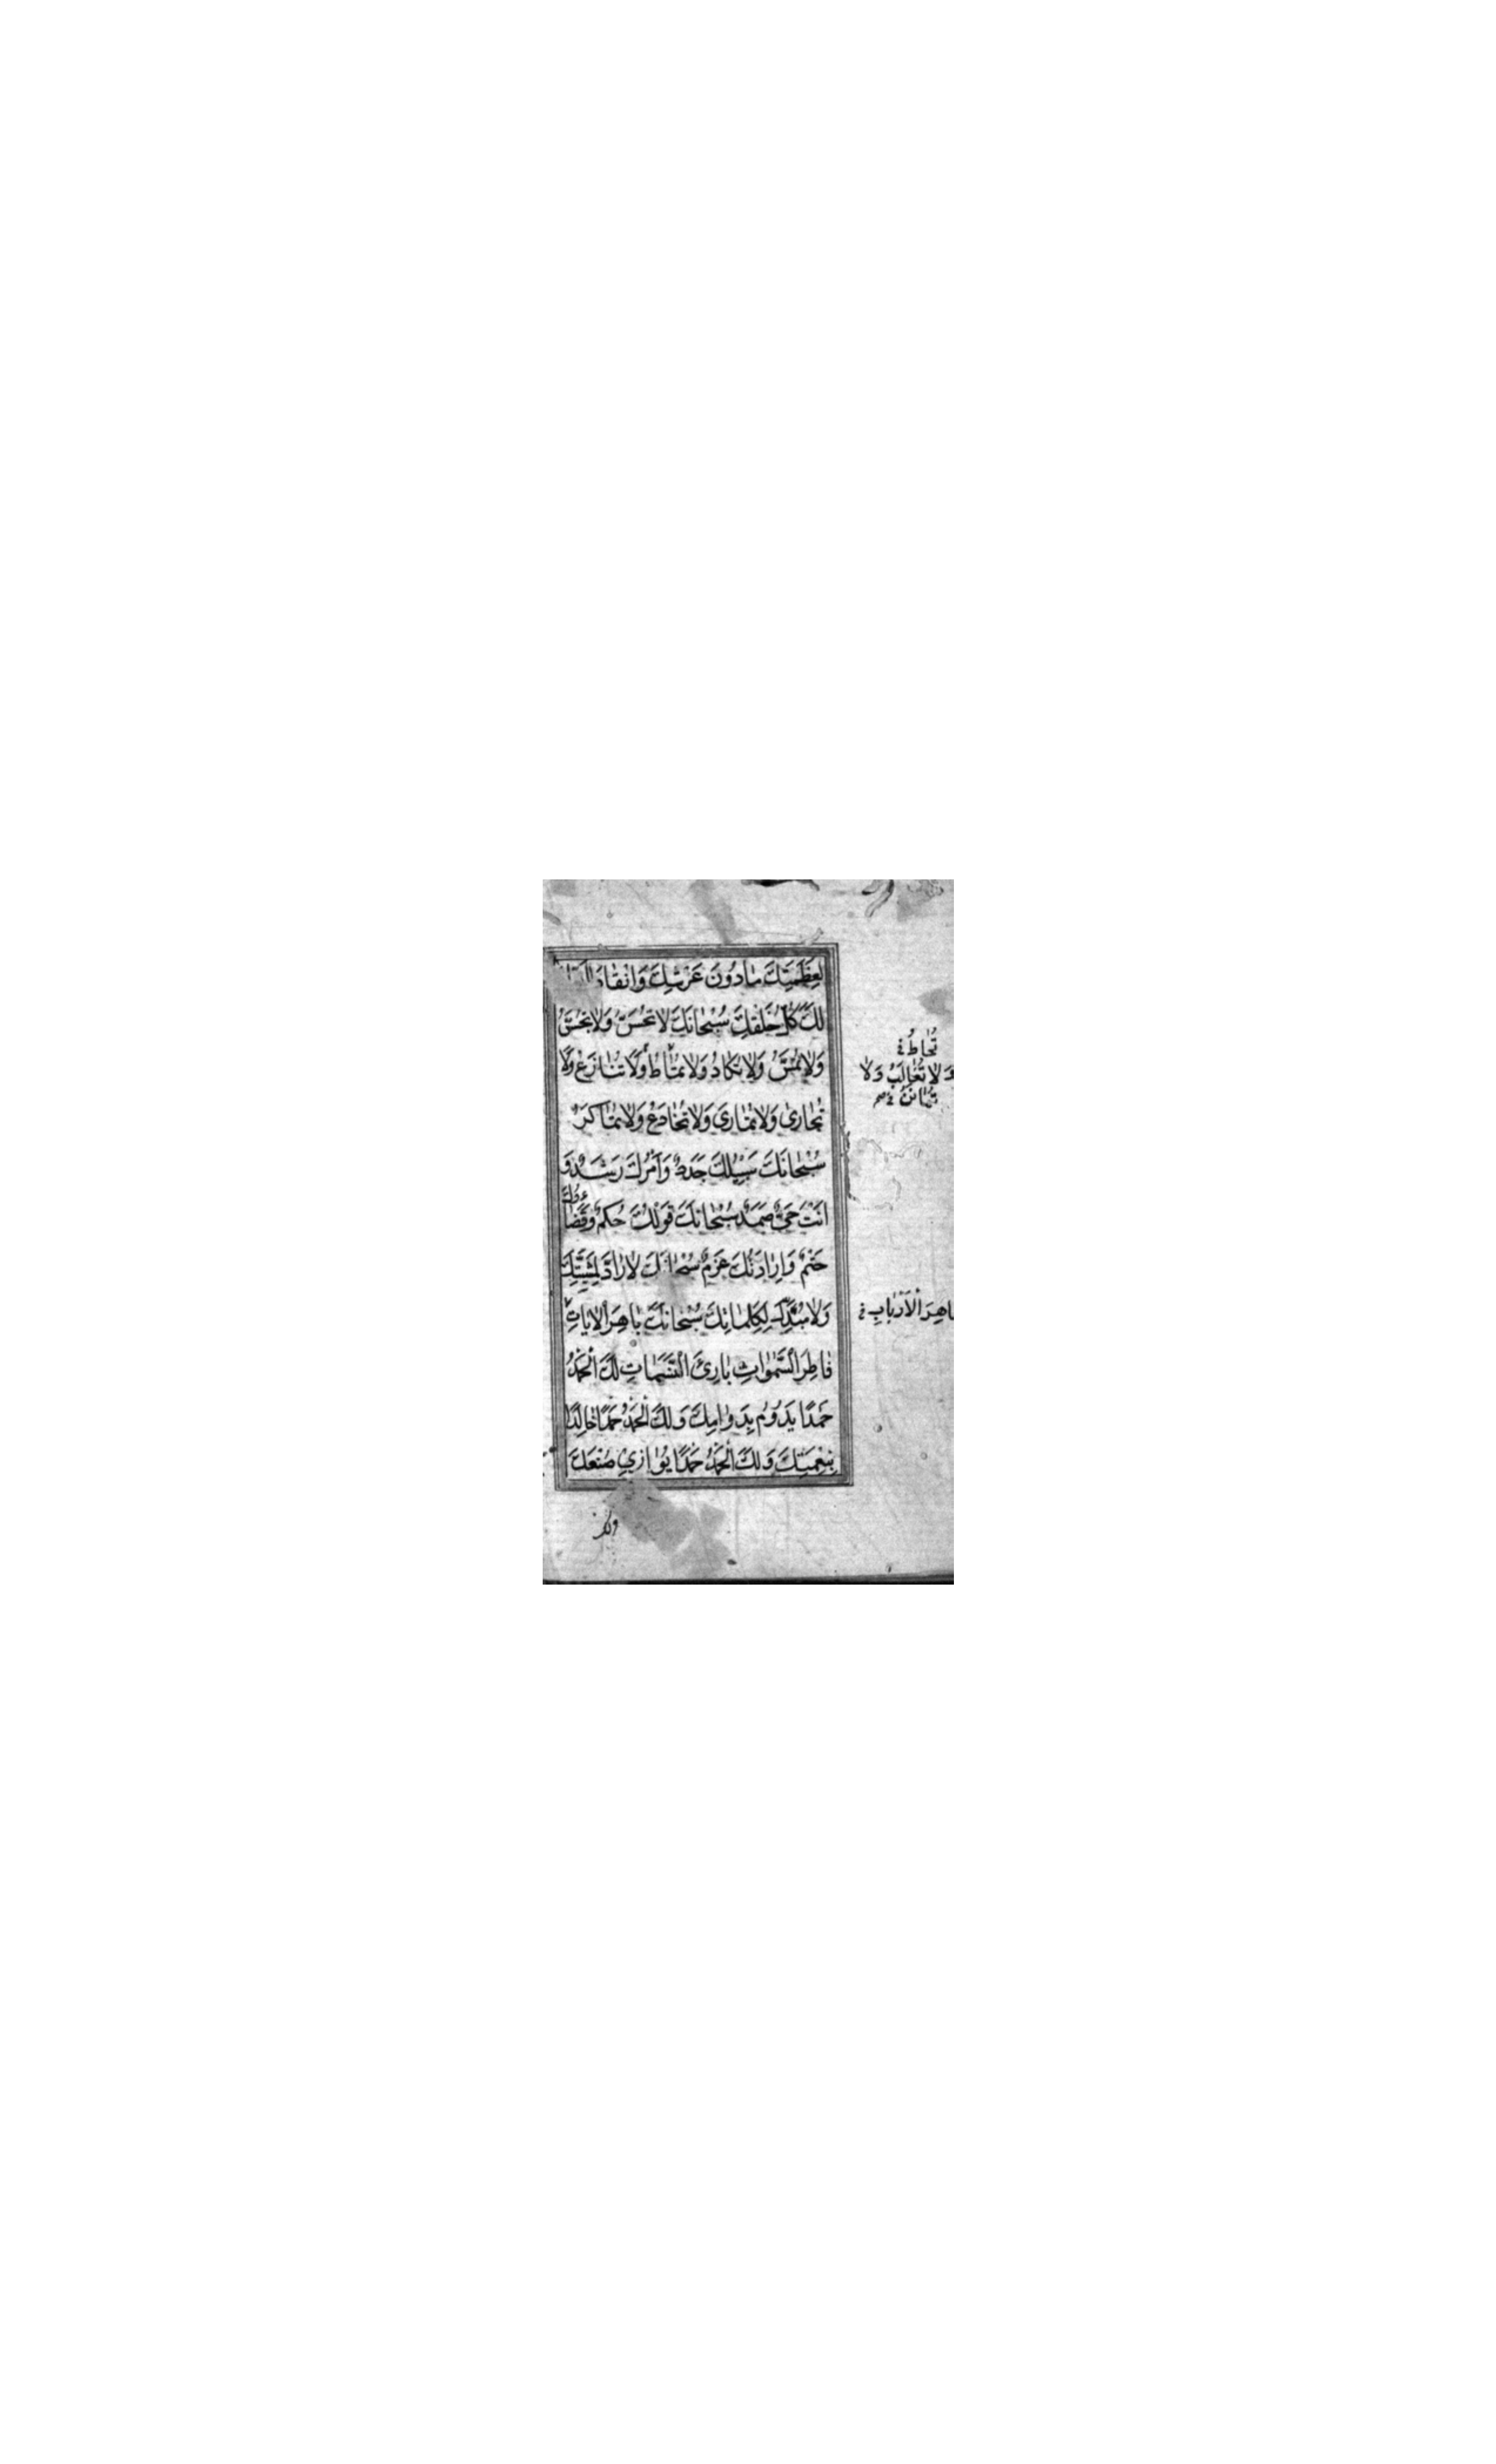 لِعَظَمَتِكَ مَا دُونَ عَرْشِكَ وَانْقَادَ
لَكَ كُلُّ خَلْقِكَ سُبْحَانَكَ لَا تُحَسُّ وَلَا تُجَسُّ
وَلَا تُمَسُّ وَلَا تُكَادُ وَلَا تُمَاطُ وَلَا تُنَازَعُ وَلَا
تُجَارَى وَلَا تُمَارَى وَلَا تُخَادَعُ وَلَا تُمَاكَرُ
سُبْحَانَكَ سَبِيلُكَ جَدَدٌ وَأَمْرُكَ رَشَدٌ وَ
أَنْتَ حَيٌّ صَمَدٌ سُبْحَانَكَ قَوْلُكَ حُكْمٌ وَقَضَاؤُكَ
حَتْمٌ وَإِرَادَتُكَ عَزْمٌ سُبْحَانَكَ لَا رَادَّ لِمَشِيَّتِكَ
وَلَا مُبَدِّلَ لِكَلِمَاتِكَ سُبْحَانَكَ بَاهِرَ الْآيَاتِ
فَاطِرَ السَّمٰوَاتِ بَارِئَ النَّسَمَاتِ لَكَ الْحَمْدُ
حَمْدًا يَدُومُ بِدَوَامِكَ وَلَكَ الْحَمْدُ حَمْدًا خَالِدًا
بِنِعْمَتِكَ وَلَكَ الْحَمْدُ حَمْدًا يُوَازِي صُنْعَكَ
تُحَاطُ
وَلَا تُغَالَبُ وَلَا
اهِرَ الْأَرْبَابِ
ولك